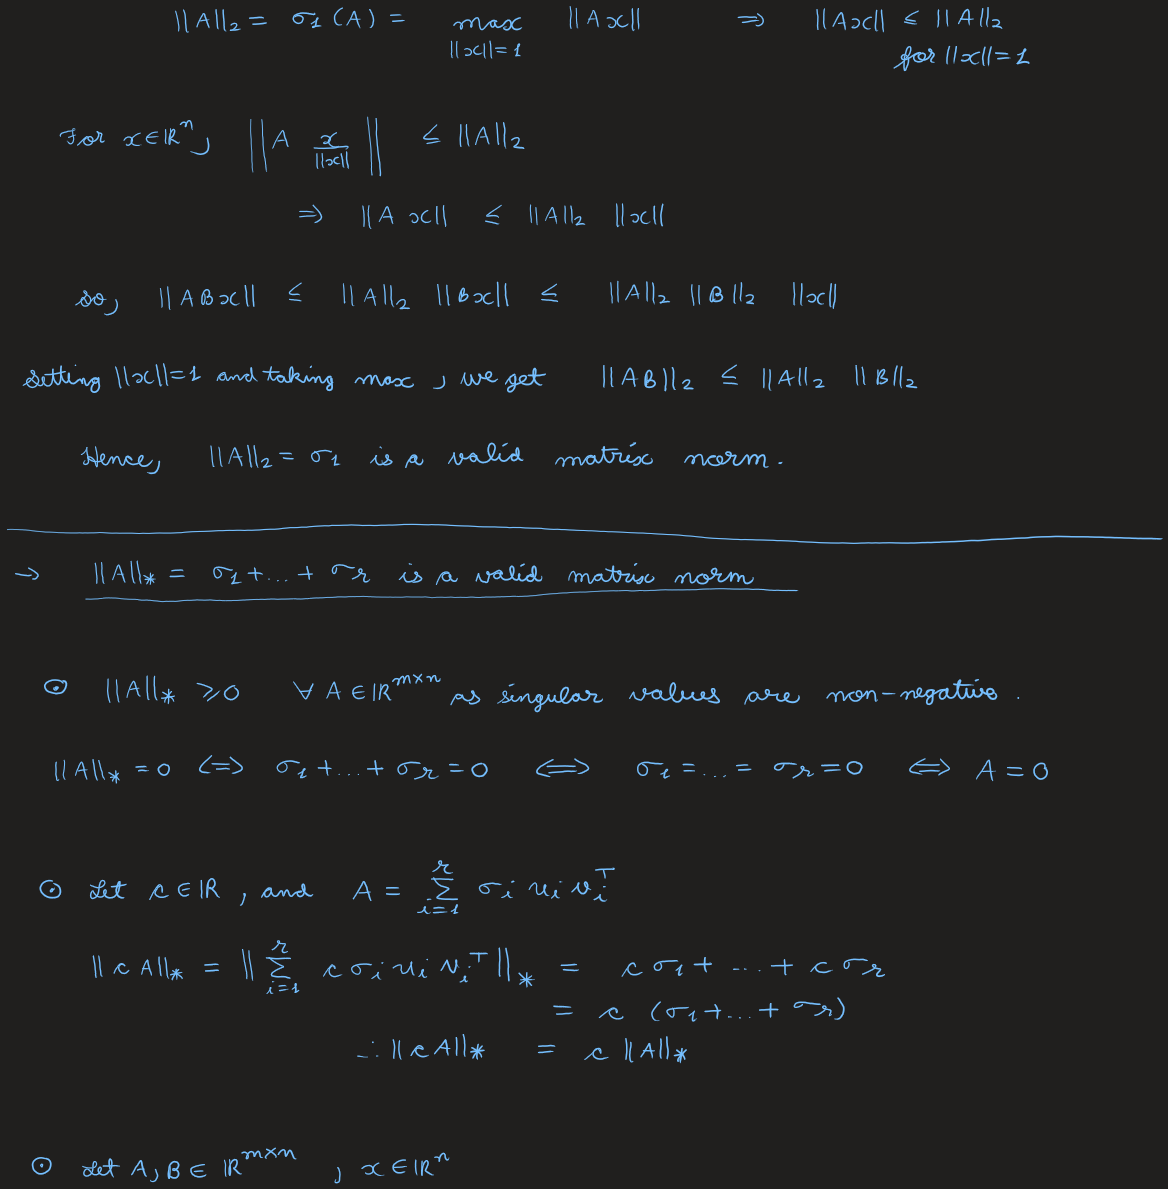 ||A||₂ = σ₁ (A) = max ||Ax|| ⇒ ||Ax|| ≤ ||A||₂
||x||=1 for ||x||=1
For x∈ℝⁿ, || A x/||x|| || ≤ ||A||₂
⇒ ||A x|| ≤ ||A||₂ ||x||
so, ||ABx|| ≤ ||A||₂ ||Bx|| ≤ ||A||₂ ||B||₂ ||x||
setting ||x||=1 and taking max, we get ||AB||₂ ≤ ||A||₂ ||B||₂
Hence, ||A||₂ = σ₁ is a valid matrix norm.
→ ||A||* = σ₁+...+ σr is a valid matrix norm
⊙ ||A||* ≥ 0 ∀ A∈ℝ^{m×n} as singular values are non-negative.
||A||* = 0 ⟺ σ₁+...+ σr = 0 ⟺ σ₁ = ... = σr = 0 ⟺ A = 0
⊙ Let c∈ℝ, and A = Σ_{i=1}^{r} σᵢ uᵢ vᵢᵀ
||c A||* = ||Σ_{i=1}^{r} c σᵢ uᵢ vᵢᵀ||* = c σ₁ + ... + c σr
= c (σ₁+...+ σr)
∴ ||c A||* = c ||A||*
⊙ Let A, B ∈ ℝ^{m×n} , x∈ℝⁿ